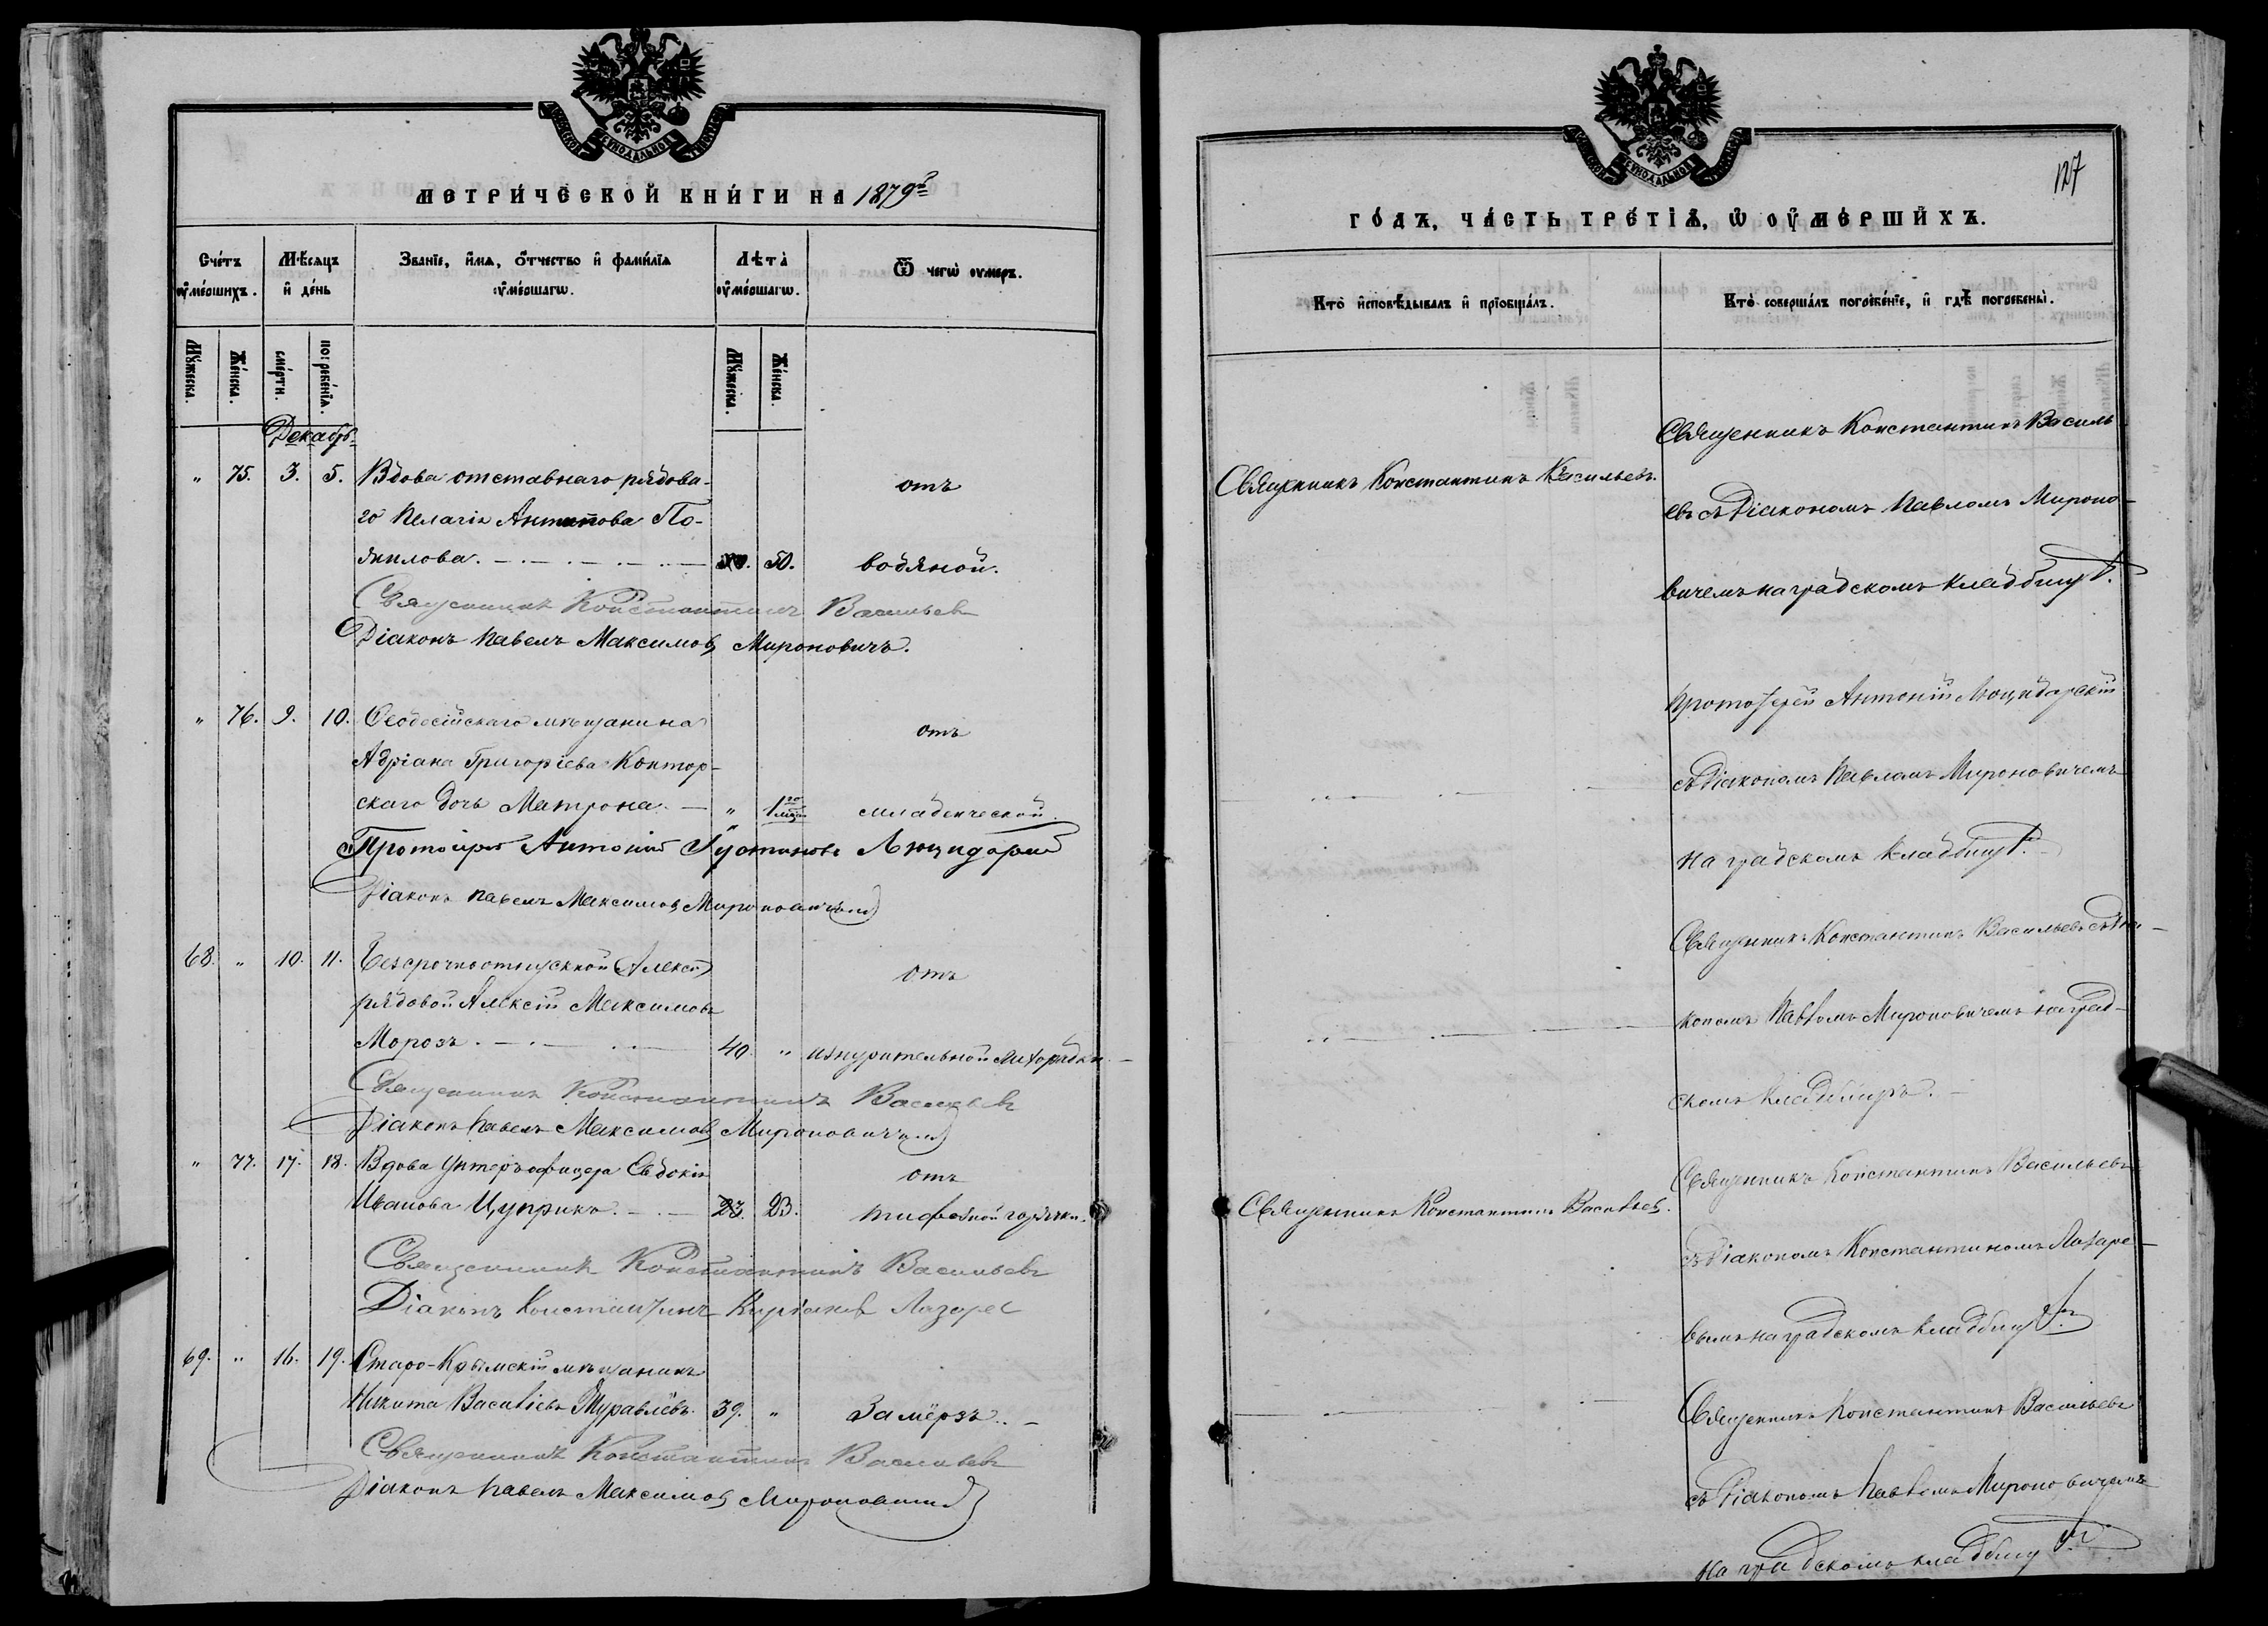 МЕТРИЧЕСКОЙ КНИГИ НА 1879й
Счетъ умершихъ.
Мѣсяцъ и день
Званіе, имя, отчество и фамилія умершагѡ.
Лѣта умершагѡ.
Ѿ чегѡ умеръ.
Мужеска.
Женска.
смерти.
погребенія.
Мужеска.
Женска.
Декабрь
" 75. 3. 5. Вдова отставнаго рядова-
го Пелагія Антипова По-
.
50. водяной.
отъ
Священникъ Константинъ Васильевъ
Діаконъ Павелъ Максимовъ Мироновичъ.
" 76. 9. 10. Ѳеодосійскаго мѣщанина
отъ
Адріана Григоріева Контор-
скаго дочь Матрона. — " 1го мѣс. младенческой.
Протоіерей Антоній Іустиновъ Люцидарскій
Діаконъ Павелъ Максимовъ Мироновичъ
68. " 10. 11. Безсрочноотпускной (Алексѣй)
отъ
рядовой Алексій Максимовъ
Морозъ. 40. " изнурительной лихорадки.
Священникъ Константинъ Васильевъ
Діаконъ Павелъ Максимовъ Мироновичъ
" 77. 17. 18. Вдова Унтеръ-офицера Евдокія
отъ
Иванова Цуприкъ. 23. 23. тифозной горячки.
Священникъ Константинъ Васильевъ
Діаконъ Константинъ Лазаре
69. " 16. 19. Старо-Крымскій мѣщанинъ
Никита Василіевъ Журавлёвъ. 39. " Замёрзъ.
Священникъ Константинъ Васильевъ
Діаконъ Павелъ Максимовъ Мироновичъ
127
ГОДЪ, ЧАСТЬ ТРЕТІѦ, Ѡ ОУМЕРШИХЪ.
Кто исповѣдывалъ и пріобщалъ.
Кто совершалъ погребеніе, и гдѣ погребены.
Священникъ Константинъ Васильевъ.
Священникъ Константинъ Василь
евъ съ Діакономъ Павломъ Мироно-
вичемъ на градскомъ кладбищѣ.
Протоіерей Антоній Люцидарскій
съ Діакономъ Павломъ Мироновичемъ
на градскомъ кладбищѣ.
Священникъ Константинъ Васильевъ съ Діа-
кономъ Павломъ Мироновичемъ на град-
скомъ кладбищѣ.
Священникъ Константинъ Васильевъ.
Священникъ Константинъ Васильевъ
съ Діакономъ Константиномъ Лазаре-
вымъ на градскомъ кладбищѣ
Священникъ Константинъ Васильевъ
съ Діакономъ Павломъ Мироновичемъ
на градскомъ кладбищѣ.